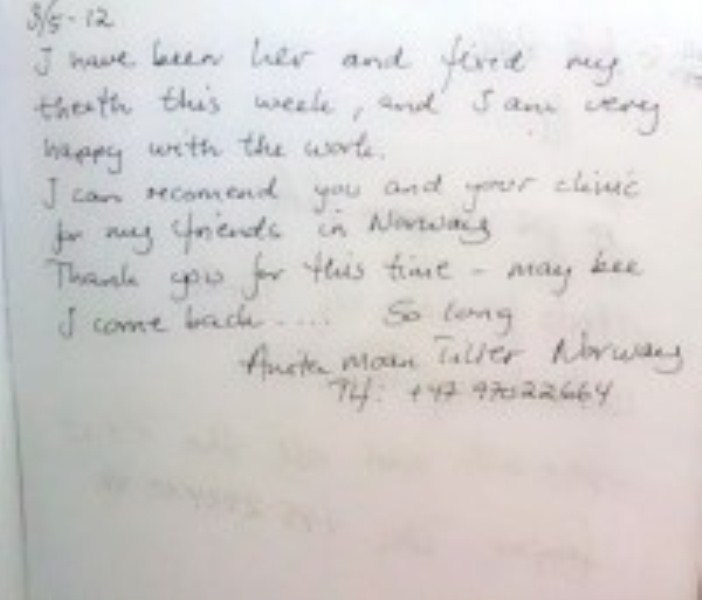 3/5-12
I have been her and fixed my
theeth this week, and I am very
happy with the work.
I can recomend you and your clinic
for my friends in Norway
Thank you for this time - may bee
I come back ..... So long
Anita Moan Tiller Norway
Tlf: +47 97022664